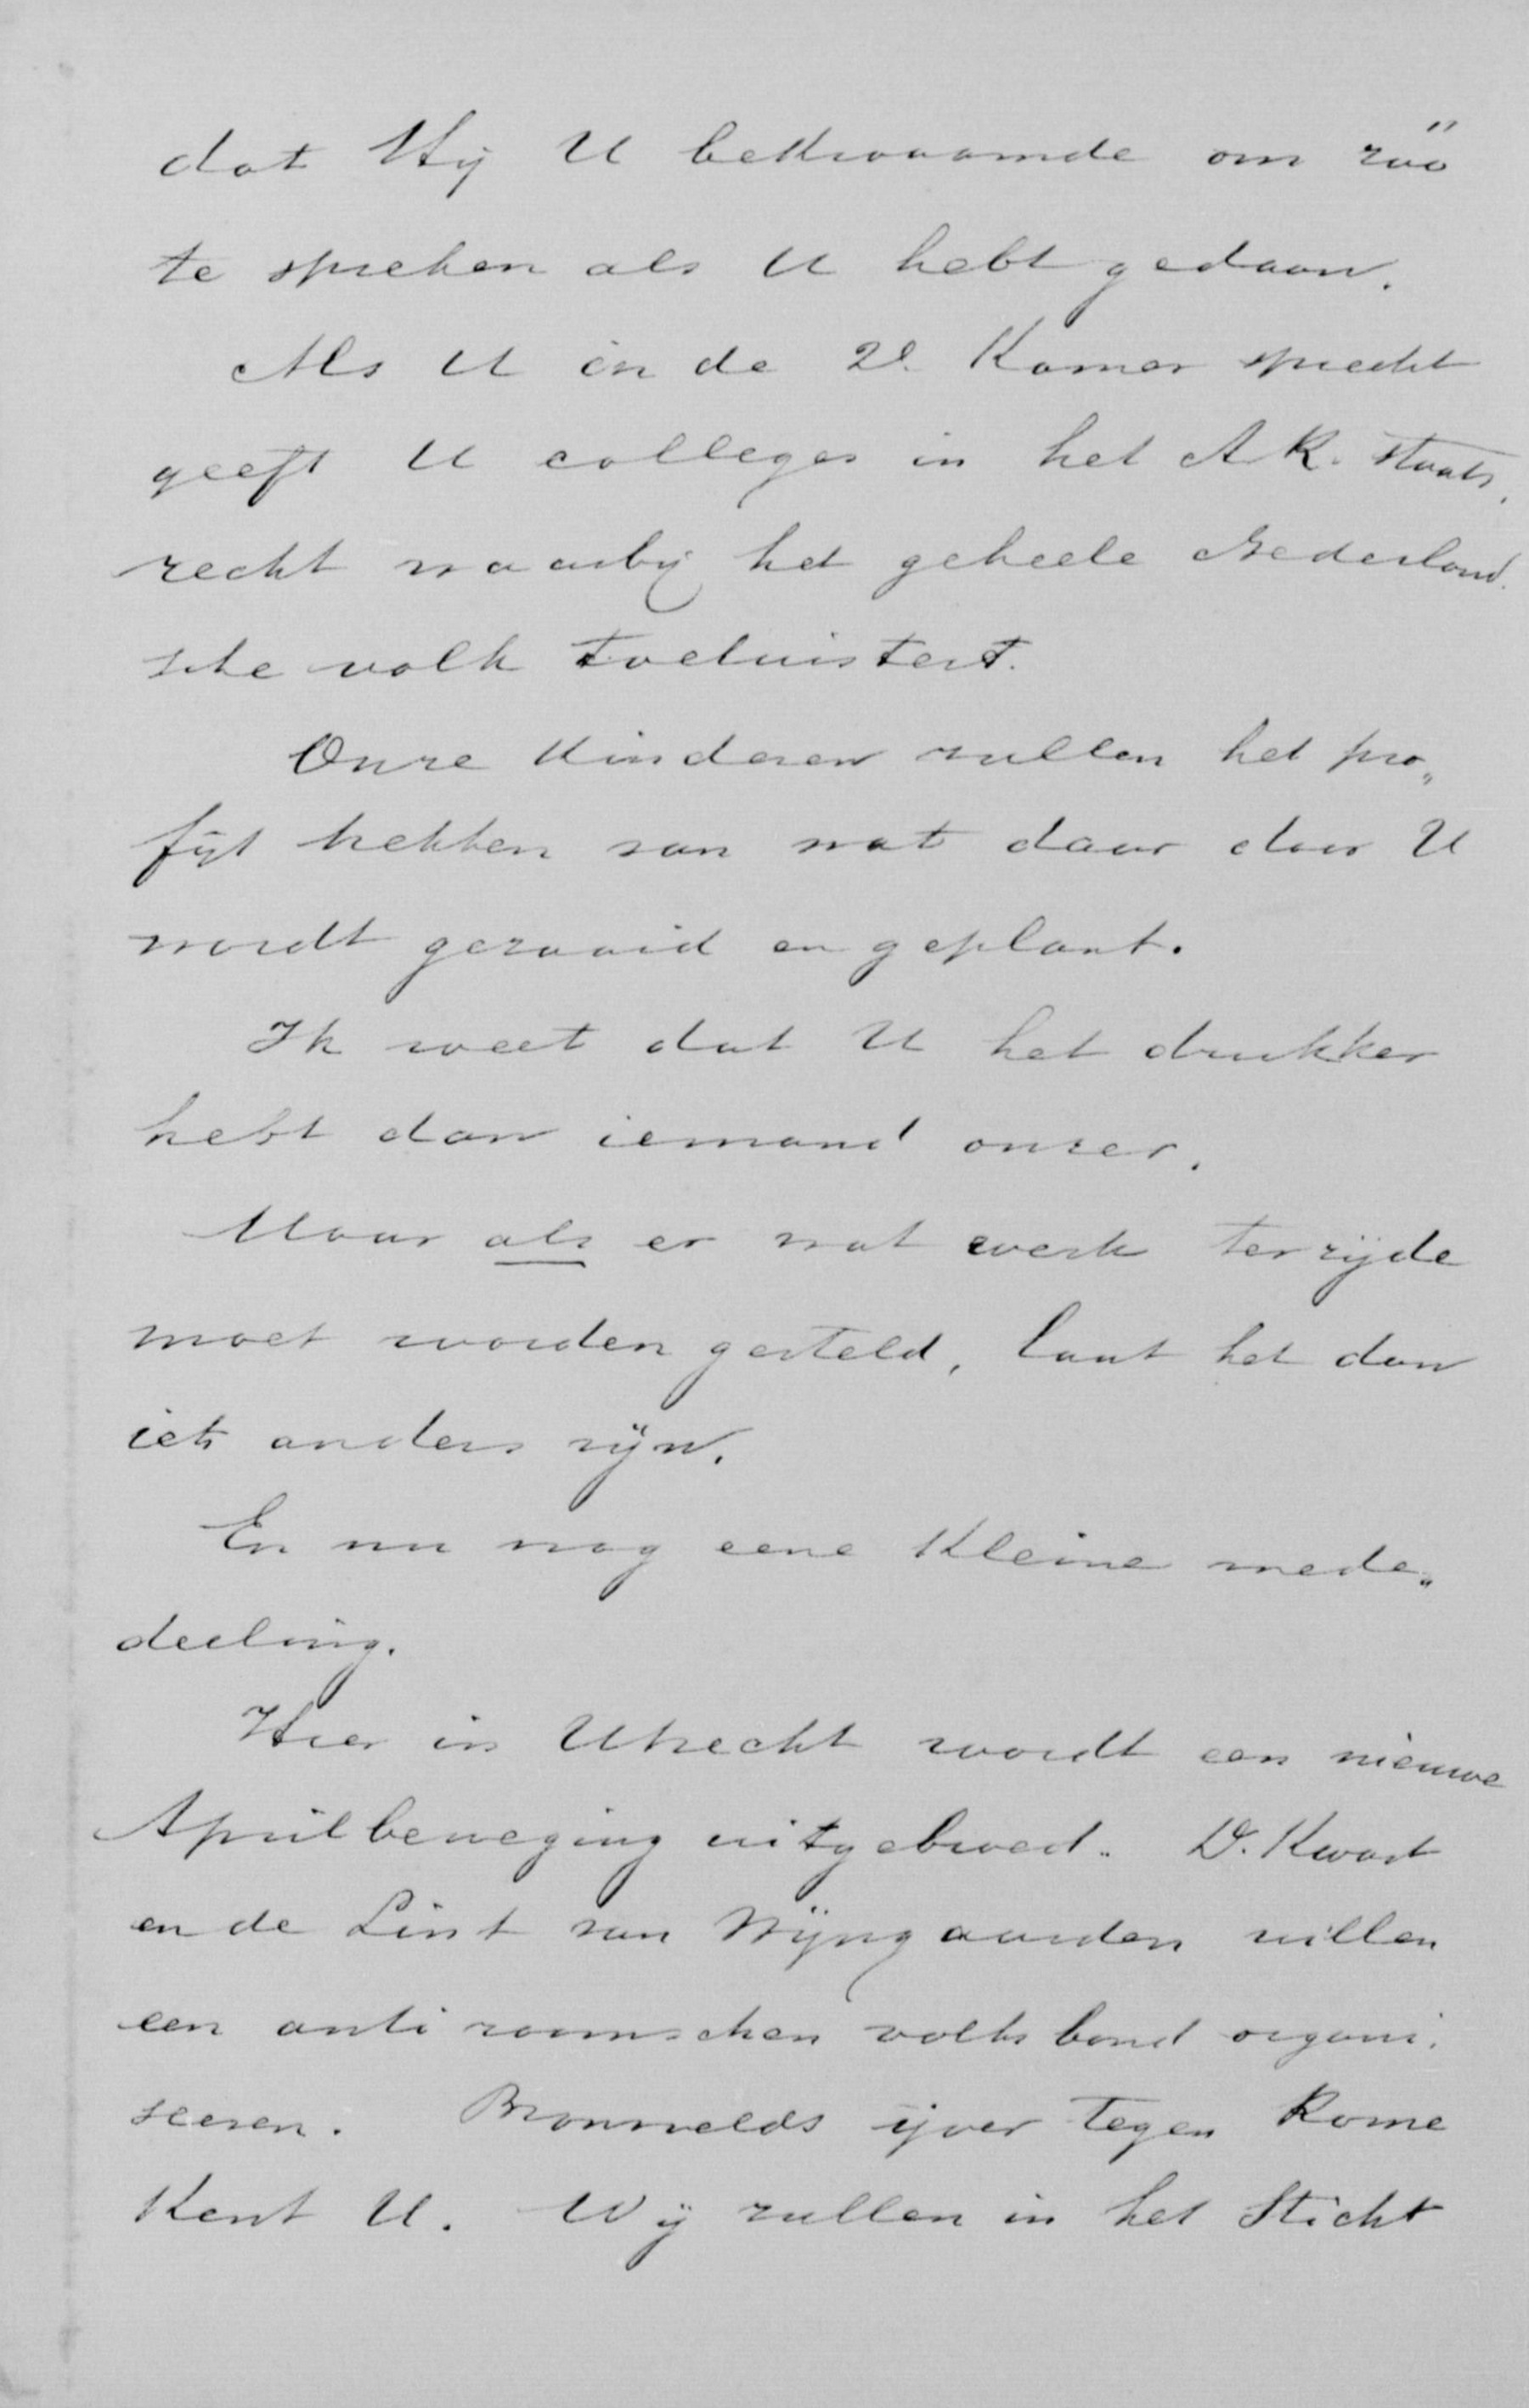 dat Hij U bekwaamde om zóó
te spreken als U hebt gedaan.
Als U in de 2e Kamer spreekt
geeft U colleges in het A R. staats,
recht waarbij het geheele Nederland.
sche volk toeluistert.
Onze kinderen zullen het pro„
fijt hebben van wat daar door U
wordt gezaaid en geplant.
Ik weet dat U het drukker
hebt dan iemand onzer.
Maar als er wat werk terzijde
moet worden gesteld, laat het dan
iets anders zijn.
En nu nog eene kleine mede„
deeling.
Hier in Utrecht wordt een nieuwe
Aprilbeweging uitgebroed. Dr. Kwast
en de Lint van Wijngaarden willen
een anti roomschen volksbond organi.
seeren. Bronsvelds ijver tegen Rome
kent U. Wij zullen in het Sticht